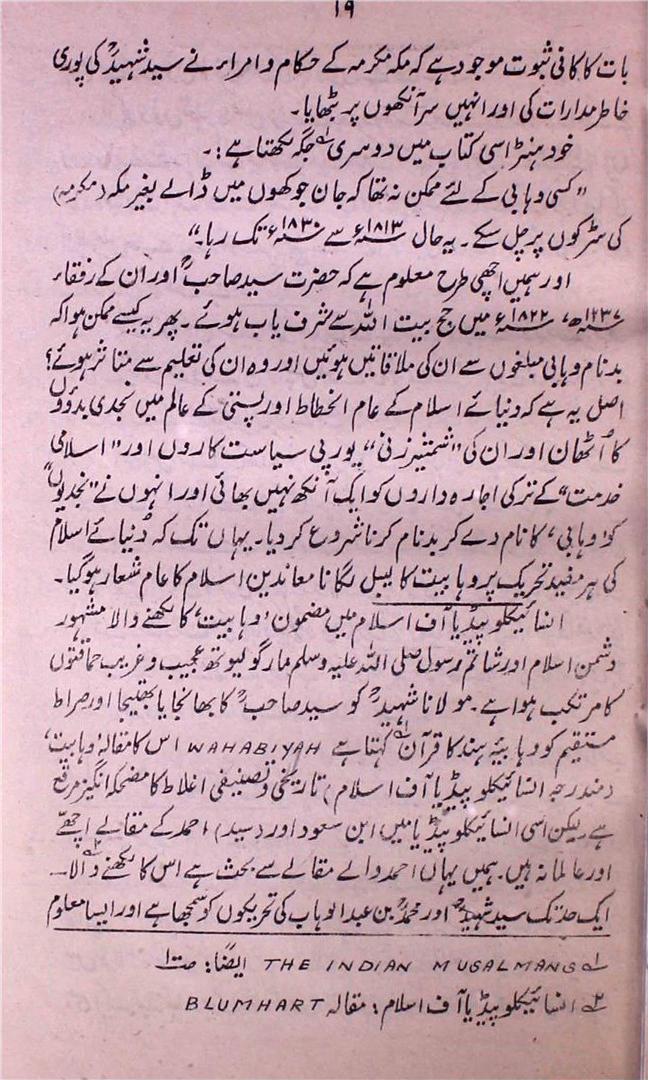 ۱۹
بات کا کافی ثبوت موجود ہے کہ مکہ مکرمہ کے حکام و امراء نے سید شہیدؒ کی پوری
خاطر مدارات کی اور انہیں سر آنکھوں پر بٹھایا۔
خود ہنٹر اسی کتاب میں دوسری جگہ لکھتا ہے:۔
”کسی وہابی کے لئے ممکن نہ تھا کہ جان جوکھوں میں ڈالے بغیر مکہ (مکرمہ)
کی سڑکوں پر چل سکے۔ یہ حال ۱۸۱۳ء سے ۱۸۳۰ء تک رہا۔“
اور ہمیں اچھی طرح معلوم ہے کہ حضرت سید صاحبؒ اور ان کے رفقاء
۱۲۳۷ھ، ۱۸۲۲ء میں حج بیت اللہ سے شرف یاب ہوئے۔ پھر یہ کیسے ممکن ہوا کہ
بدنام وہابی مبلغوں سے ان کی ملاقاتیں ہوئیں اور وہ ان کی تعلیم سے متاثر ہوئے؟
اصل یہ ہے کہ دنیائے اسلام کے عام انحطاط اور پستی کے عالم میں نجدی بدوؤں
کا اُٹھان اور ان کی ”شمشیر زنی“ یورپی سیاست کاروں اور ”اسلامی
خدمت“ کے ترکی اجارہ داروں کو ایک آنکھ نہیں بھائی اور انہوں نے ”نجدیوں“
کو ’وہابی‘ کا نام دے کر بدنام کرنا شروع کر دیا۔ یہاں تک کہ دُنیائے اسلام
کی ہر مفید تحریک پر وہابیت کا لیبل لگانا معاندین اسلام کا عام شعار ہو گیا۔
انسائیکلوپیڈیا آف اسلام میں مضمون ’وہابیت‘ کا لکھنے والا مشہور
دشمن اسلام اور شاتم رسول صلی اللہ علیہ وسلم مارگولیوتھ عجیب و غریب حماقتوں
کا مرتکب ہوا ہے۔ مولانا شہیدؒ کو سید صاحبؒ کا بھانجا یا بھتیجا اور صراط
مستقیم کو وہابیۂ ہند کا قرآن کہتا ہے WAHABIYAH اس کا مقالہ ’وہابیت‘
(مندرجہ انسائیکلوپیڈیا آف اسلام) تاریخی و تصنیفی اغلاط کا مضحکہ انگیز مرقع
ہے لیکن اسی انسائیکلوپیڈیا میں ابن سعود اور (سید) احمد کے مقالے اچھے
اور عالمانہ ہیں۔ ہمیں یہاں احمد والے مقالے سے بحث ہے اس کا لکھنے والا۲؎
ایک حد تک سید شہیدؒ اور محمدؒ بن عبدالوہاب کی تحریکوں کو سمجھا ہے اور ایسا معلوم
۱؎ THE INDIAN MUSALMANS ایضاً: ص۱
۲؎ انسائیکلوپیڈیا آف اسلام: مقالہ BLUMHART